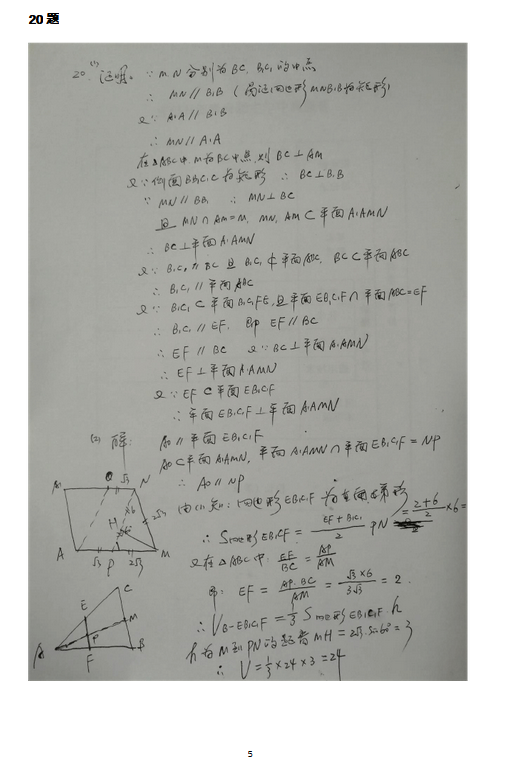 20题
20.(1)证明:∵M.N分别为BC.B₁C₁的中点
∴ MN∥B₁B
又∵A₁A∥B₁B
∴ MN∥A₁A
在△ABC中,M为BC中点,则 BC⊥AM
又∵侧面BB₁C₁C为矩形 ∴ BC⊥B₁B
∵MN∥BB₁ ∴ MN⊥BC
且 MN∩AM=M, MN, AM⊂平面A₁AMN
∴ BC⊥平面A₁AMN
又∵ B₁C₁∥BC 且 B₁C₁⊄平面ABC, BC⊂平面ABC
∴ B₁C₁∥平面ABC
又∵ B₁C₁⊂平面B₁C₁FE,且平面EB₁C₁F∩平面ABC=EF
∴ B₁C₁∥EF, 即 EF∥BC
∴ EF∥BC 又∵BC⊥平面A₁AMN
∴ EF⊥平面A₁AMN
又∵EF⊂平面EB₁C₁F
∴平面EB₁C₁F⊥平面A₁AMN
(2) 解: AO∥平面EB₁C₁F
AO⊂平面A₁AMN, 平面A₁AMN∩平面EB₁C₁F=NP
∴ AO∥NP
由(1)知:四边形EB₁C₁F为直角梯形
∴ S四边形EB₁C₁F=(EF+B₁C₁)/2 PN =(2+6)/2×6=
又在△ABC中, EF/BC=AP/AM
即: EF=AP·BC/AM=√3×6/3√3=2.
∴V B-EB₁C₁F=1/3 S四边形EB₁C₁F·h
h为M到PN的距离MH=2√3·sin60°=3
∴ V=1/3×24×3=24
A₁ O √3 N
H 2√3
A √3 P 2√3 M
C
E M
P
A F B
5